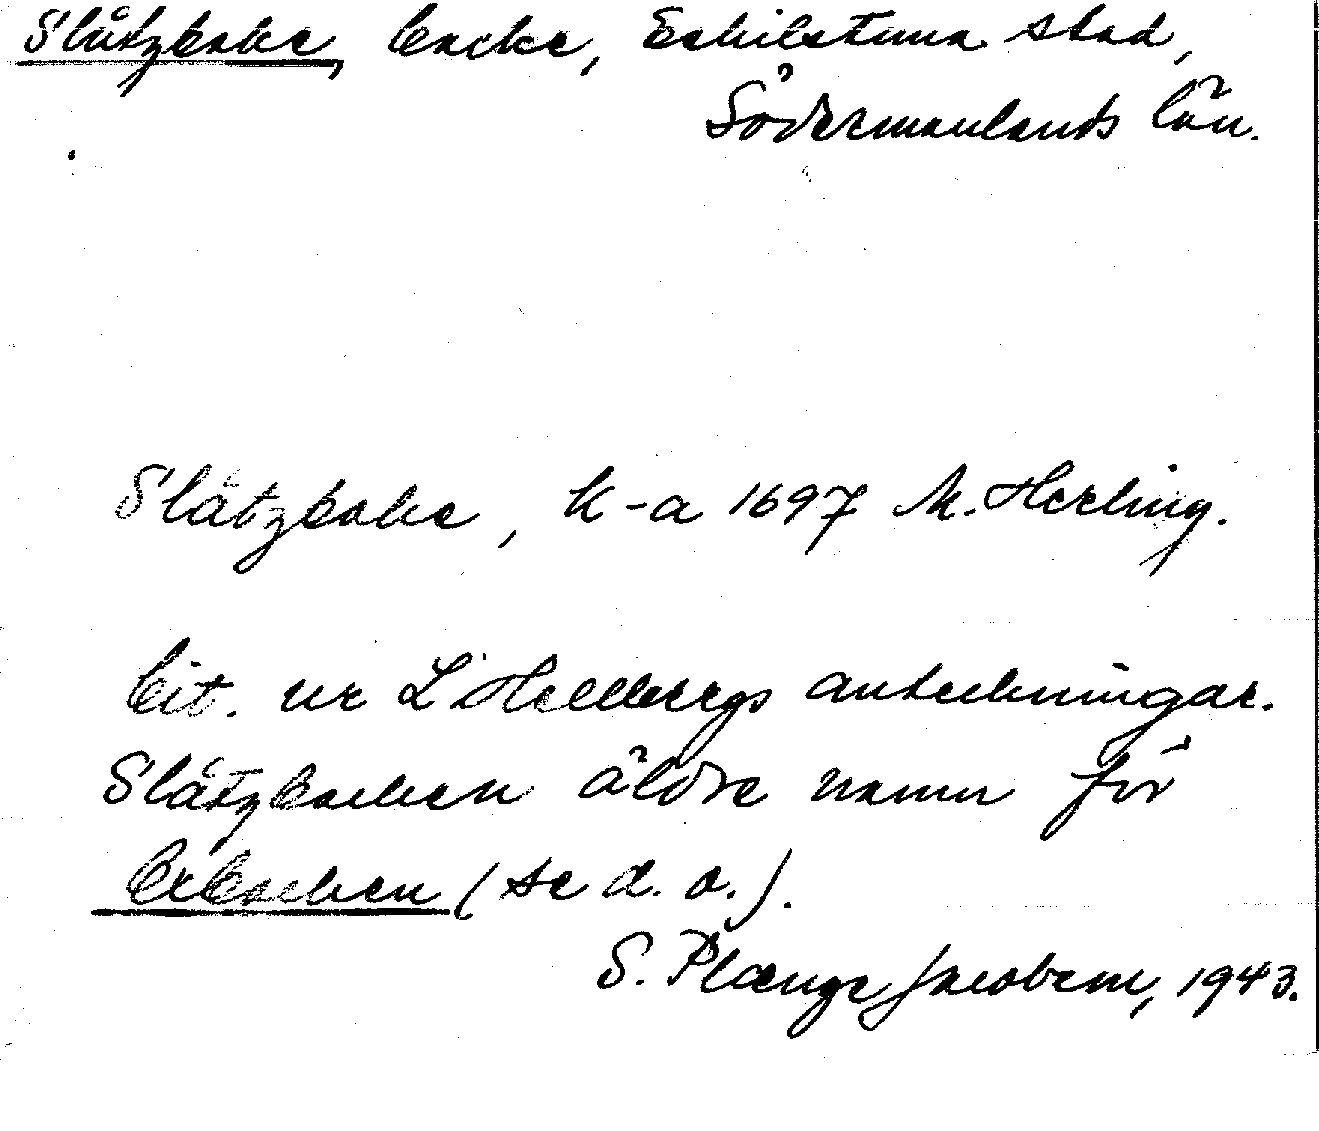 Slåtzbake, backe, Eskilstuna stad,
Södermanlands län.
Slåtzbake, k-a 1697 M. Herling.
Cit. ur L Hellbergs anteckningar.
Slåtzbacken äldre namn för
(se d. o.).
S. Plænge Jacobson, 1943.